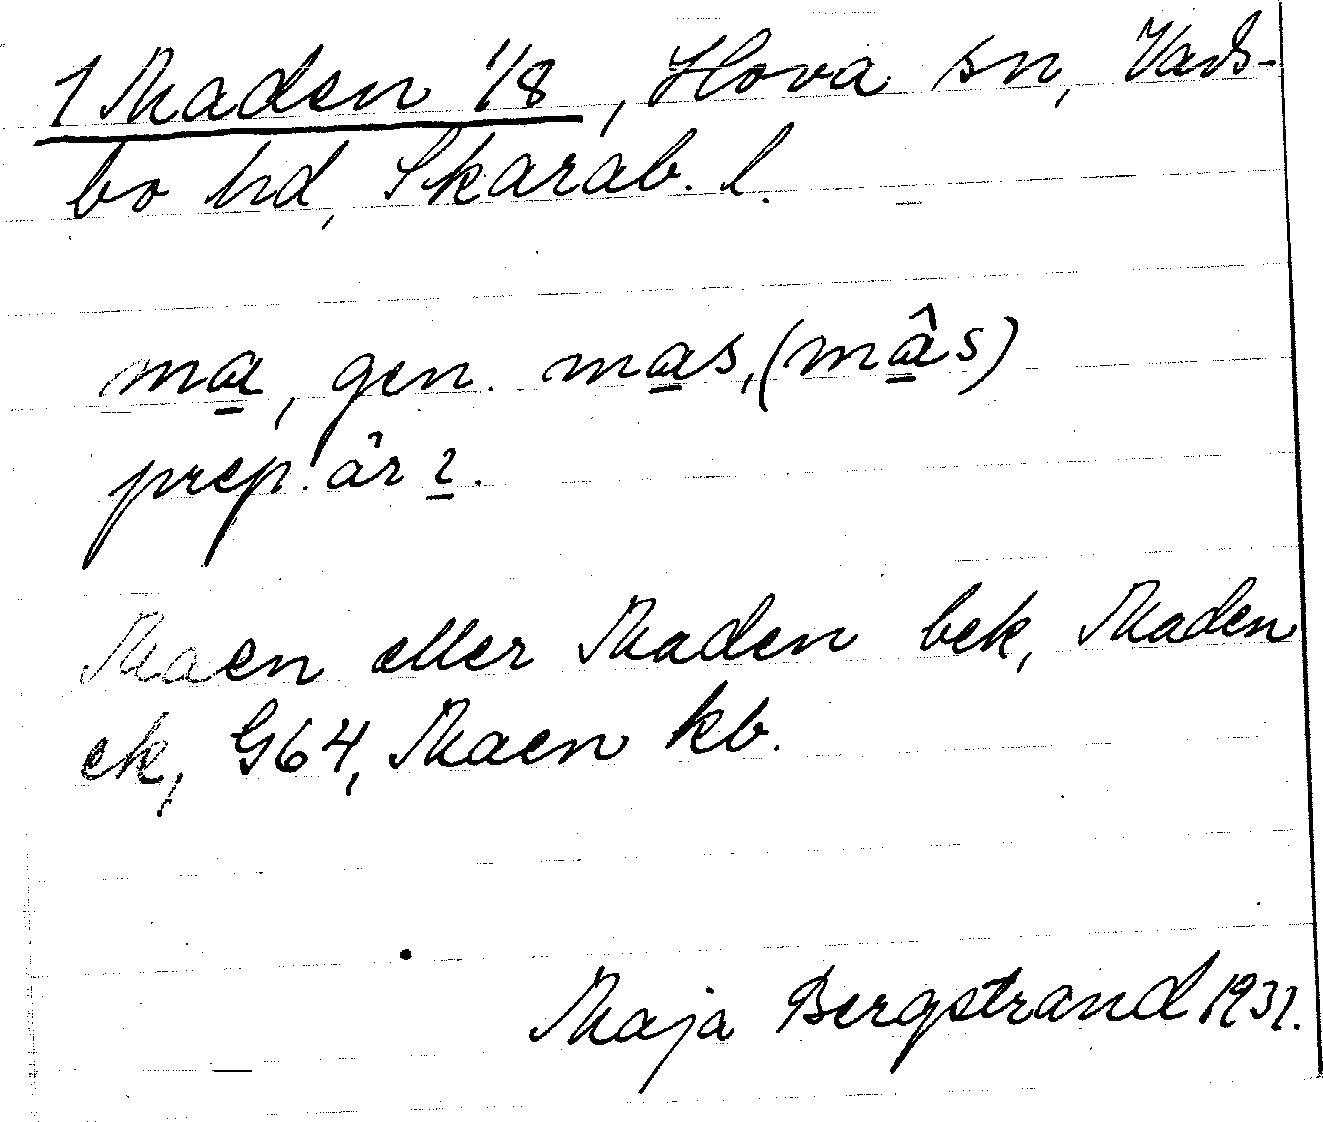 1 Maden 1/8, Hova sn, Vads-
bo hd, Skarab. l.
ma̲, gen. ma̲s, (mâ̲s)
prep. är ı̲.
Maen eller Maden bek, Maden
ek, G64, Maen kb.
Maja Bergstrand 1931.